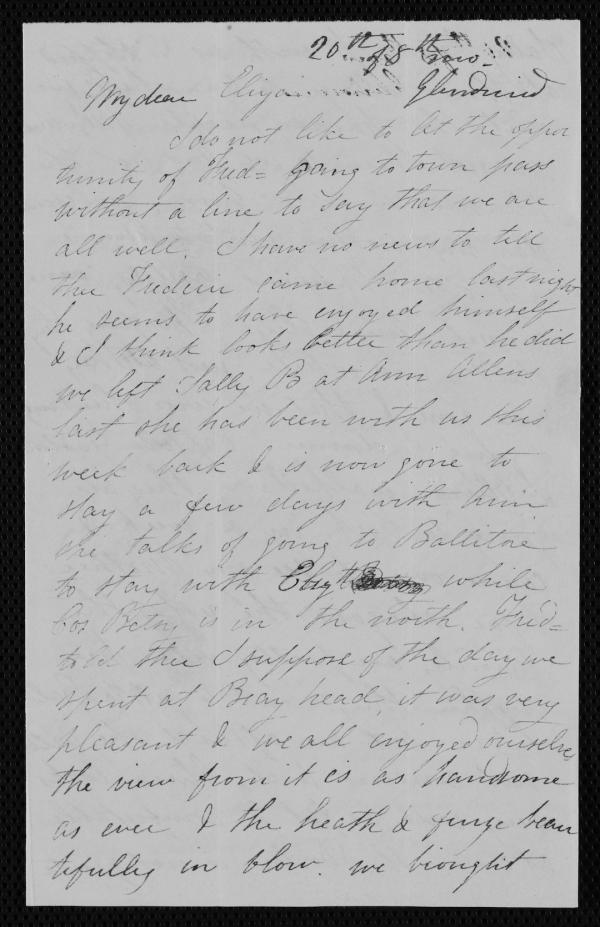 20th of 8th mo.
My dear Eliza Glendruid
I do not like to let the oppor
tunity of Fred= going to town pass
without a line to say that we are
all well. I have no news to tell
thee Frederic came home last night
he seems to have enjoyed himself
& I think looks better than he did
we left Sally B at Ann Allens
last she has been with us this
week back & is now gone to
stay a few days with Ann
she talks of going to Ballitore
to stay with Elizth while
Cos Betsy is in the north. Fred=
told thee I suppose of the day we
spent at Bray head, it was very
pleasant & we all enjoyed ourselves
the view from it is as handsome
as ever & the heath & furze beau
tifully in blow. we brought